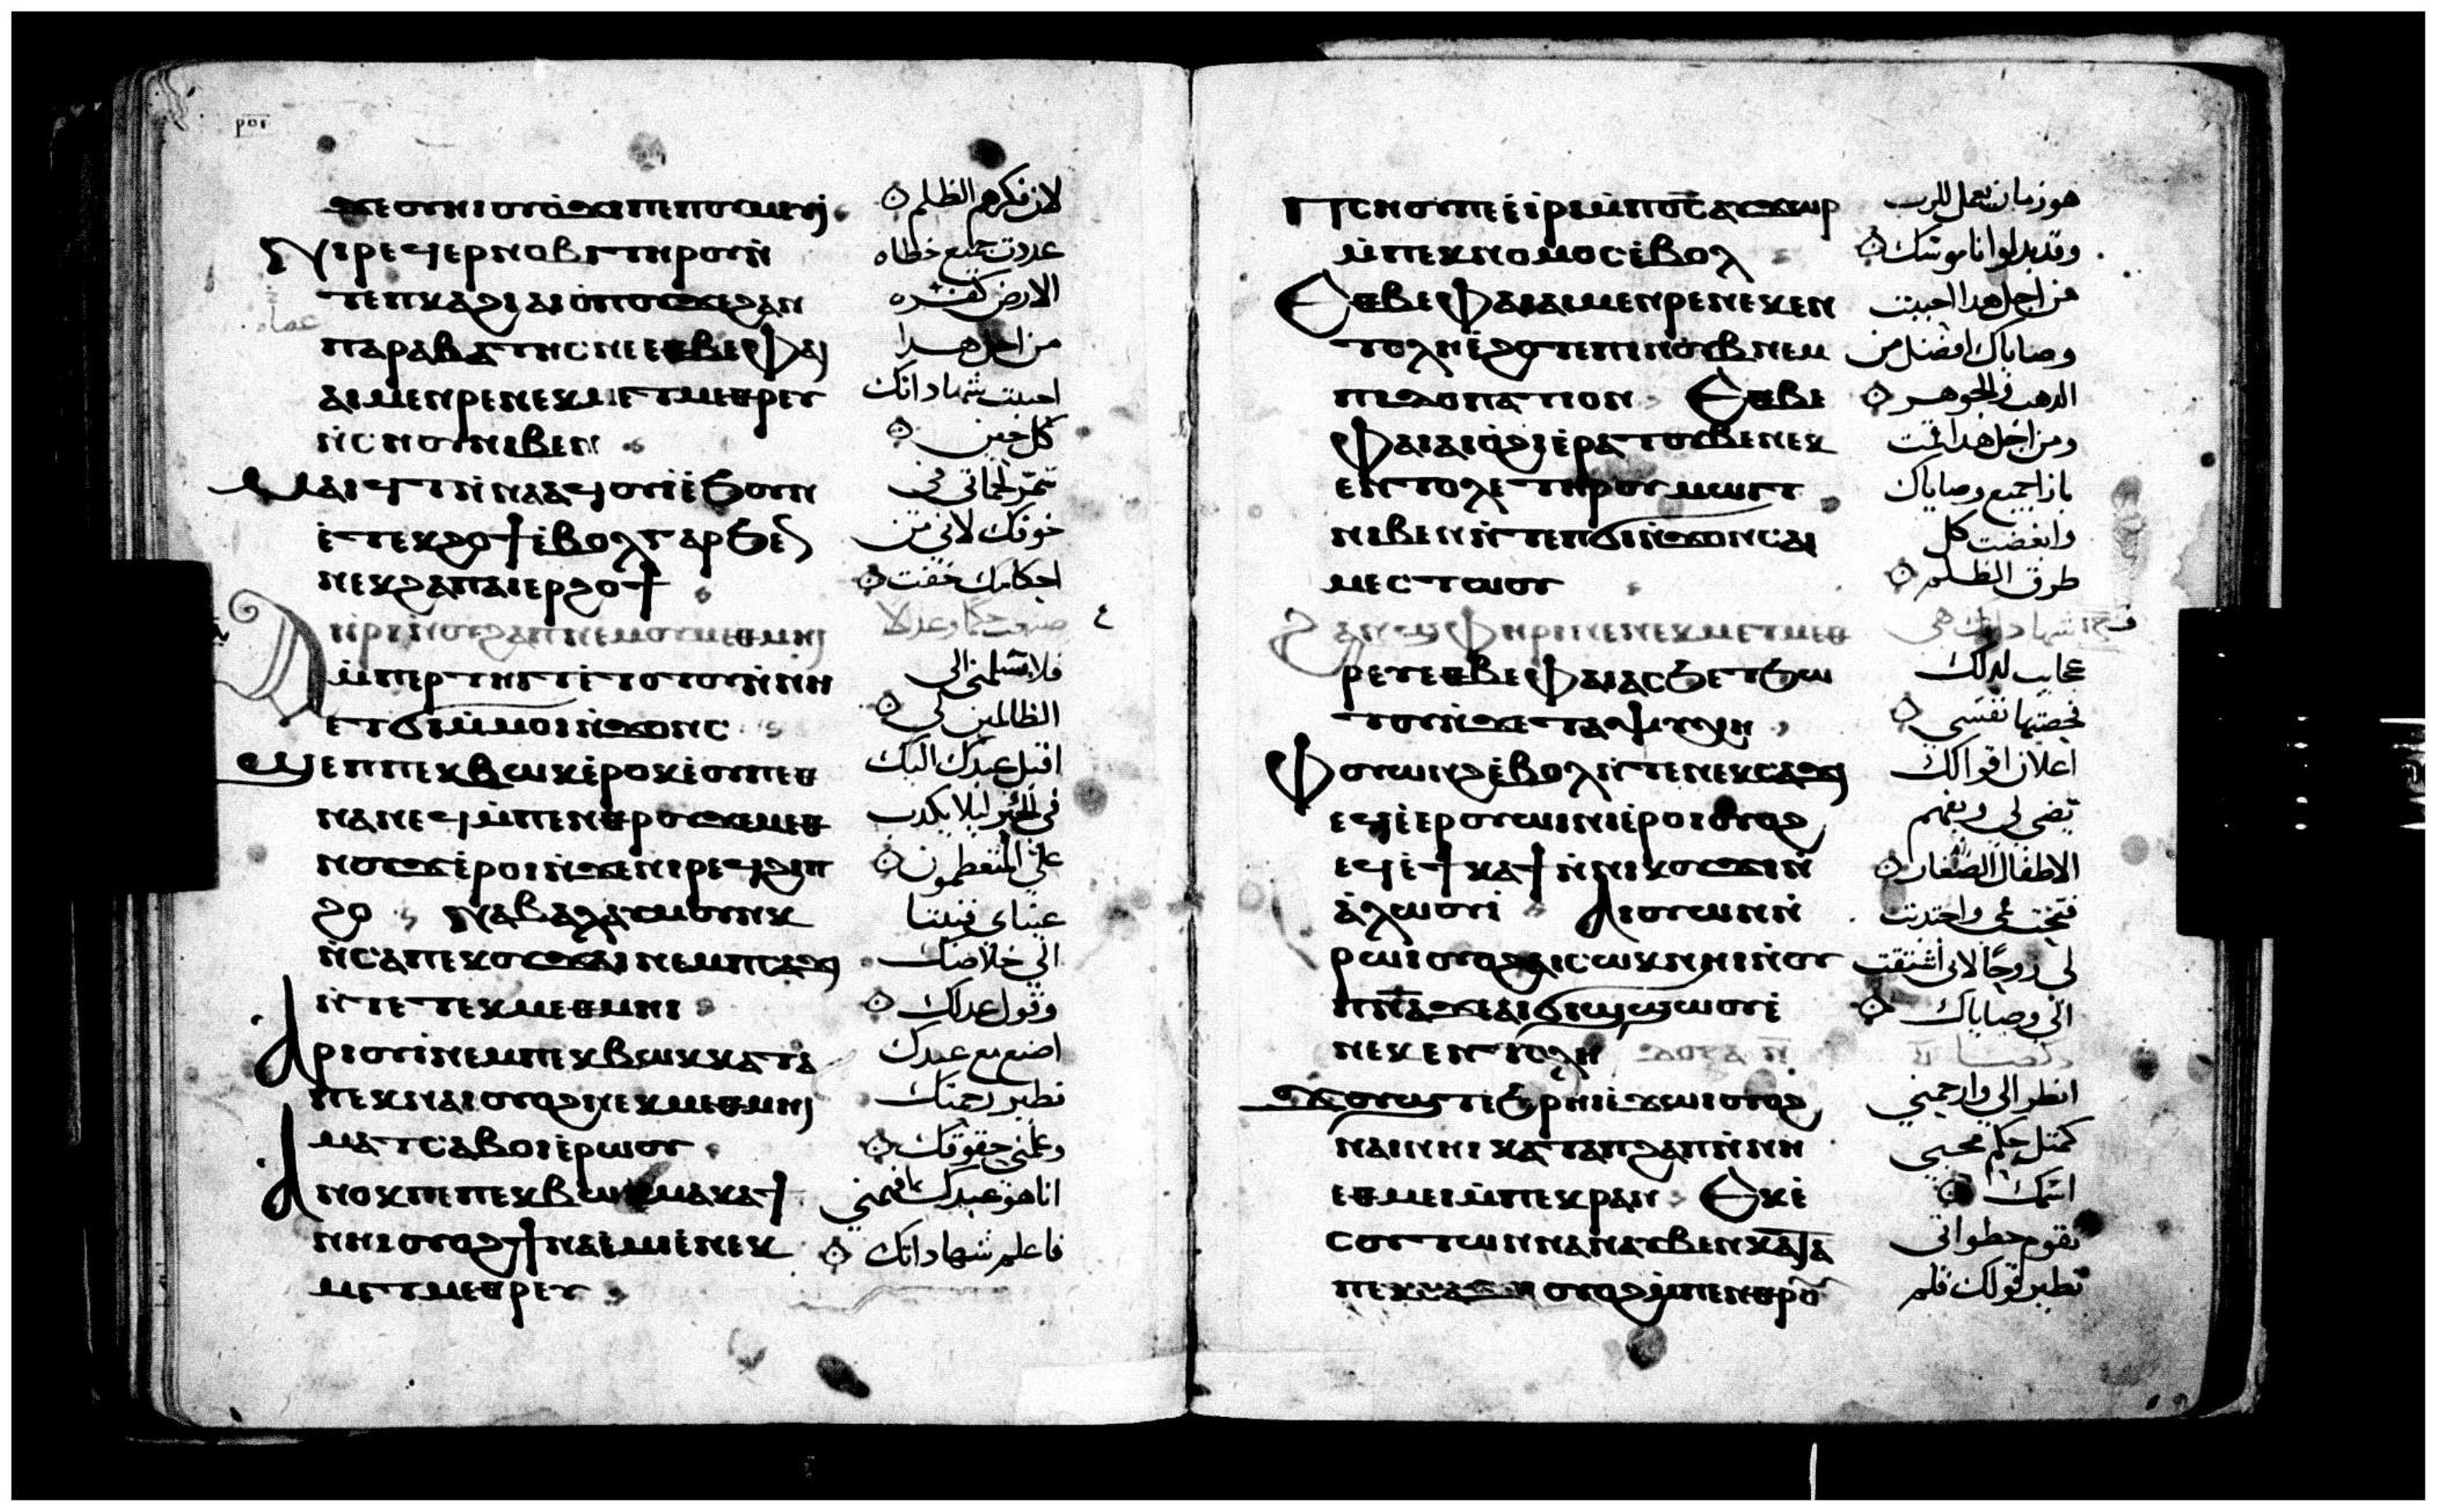 ϫⲉⲟⲩϭⲓ ⲛ̀ϫⲟⲛⲥ ⲡⲉ ⲡⲟⲩⲙⲉⲩⲓ̀
لان فكرهم الظلم
ⲛⲓⲣⲉϥⲉⲣⲛⲟⲃⲓ ⲧⲏⲣⲟⲩ ⲛ̀
عددت جميع خطاه
ⲧⲉⲡⲕⲁϩⲓ ⲁⲓⲟⲡⲟⲩ ϫⲉϩⲁⲛ
الارض كفره
ⲡⲁⲣⲁⲃⲁⲧⲏⲥ ⲛⲉ ⲉⲑⲃⲉⲫⲁⲓ
من اجل هدا
ⲁⲓⲙⲉⲛⲣⲉ ⲛⲉⲕⲙⲉⲧⲙⲉⲑⲣⲉⲩ
احببت شهاداتك
ⲛ̀ⲥⲏⲟⲩ ⲛⲓⲃⲉⲛ
كل حين
ⲙⲁⲓϥⲧ ⲛ̀ⲛⲁⲁϥⲟⲩⲓ̀ ⲉ̀ϧⲟⲩⲛ
سمّر لحماتي في
ⲉ̀ⲧⲉⲕϩⲟϯ ⲉ̀ⲃⲟⲗ ⲅⲁⲣ ϧⲉⲛ
خوفك لاني من
ⲛⲉⲕϩⲁⲡ ⲁⲓⲉⲣϩⲟϯ
احكامك خفت
ⲁⲓⲓⲣⲓ ⲛ̀ⲟⲩϩⲁⲡ ⲛⲉⲙ ⲟⲩⲙⲉⲑⲙⲏⲓ
صنعت حكما وعدلا
ⲙ̀ⲡⲉⲣⲧⲏⲓⲧ ⲉ̀ⲧⲟⲧⲟⲩ ⲛ̀ⲛⲏ
فلا تسلمني الى
ⲉⲧϭⲓ ⲙ̀ⲙⲟⲓ ⲛ̀ϫⲟⲛⲥ
الظالمين لي
ϣⲉⲡ ⲡⲉⲕⲃⲱⲕ ⲉ̀ⲣⲟⲕ ⲉ̀ⲟⲩⲡⲉⲑ
اقبل عبدك اليك
ⲛⲁⲛⲉϥ ⲙ̀ⲡⲉⲛⲑⲣⲟⲩϫⲉⲙⲉⲑ
في الخير ليلا يكدب
ⲛⲟⲩϫ ⲉ̀ⲣⲟⲓ ⲛ̀ϫⲉⲛⲓⲣⲉϥϩⲓⲡ
علي المتعظمون
ϩⲟ ⲛⲁⲃⲁⲗ ⲁⲩⲙⲟⲩⲛⲕ
عيناي فنيتا
ⲛ̀ⲥⲁⲡⲉⲕⲟⲩϫⲁⲓ ⲛⲉⲙ ⲡⲥⲁϫⲓ
الى خلاصك
ⲛ̀ⲧⲉ ⲧⲉⲕⲙⲉⲑⲙⲏⲓ
وقول عدلك
ⲁⲣⲓⲟⲩⲓ̀ ⲛⲉⲙ ⲡⲉⲕⲃⲱⲕ ⲕⲁⲧⲁ
اصنع مع عبدك
ⲡⲉⲕⲛⲁⲓ ⲟⲩⲟϩ ⲛⲉⲕⲙⲉⲑⲙⲏⲓ
نظير رحمتك
ⲙⲁⲧⲥⲁⲃⲟⲓ ⲉ̀ⲣⲱⲟⲩ
وعلمني حقوقك
ⲁⲛⲟⲕ ⲡⲉ ⲡⲉⲕⲃⲱⲕ ⲙⲁⲕⲁϯ
انا هو عبدك فافهمني
ⲛⲏⲓ ⲟⲩⲟϩ ϯⲛⲁⲉ̀ⲙⲓ ⲉ̀ⲛⲉⲕ
فاعلم شهاداتك
ⲙⲉⲧⲙⲉⲑⲣⲉⲩ
ⲡⲥⲏⲟⲩ ⲡⲉ ⲉ̀ⲓⲣⲓ ⲙ̀ⲡⲟ̅ⲥ̅ ⲁⲩϫⲱⲣ
هو زمان يعمل للرب
ⲙ̀ⲡⲉⲕⲛⲟⲙⲟⲥ ⲉ̀ⲃⲟⲗ
وقد بددوا ناموسك
ⲉⲑⲃⲉⲫⲁⲓ ⲁⲓⲙⲉⲛⲣⲉ ⲛⲉⲕⲉⲛ
من اجل هدا احببت
ⲧⲟⲗⲏ ⲉ̀ϩⲟⲧⲉ ⲡⲓⲛⲟⲩⲃ ⲛⲉⲙ
وصاياك افضل من
ⲡⲓⲇⲟⲡⲁⲧⲓⲟⲛ ⲉⲑⲃⲉ
الدهب والجوهر
ⲫⲁⲓ ⲁⲓⲟϩⲓ ⲉ̀ⲣⲁⲧ ⲟⲩⲃⲉ ⲛⲉⲕ
ومن اجل هدا قمت
ⲉⲛⲧⲟⲗⲉ ⲧⲏⲣⲟⲩ ⲙⲱⲓⲧ
بازا جميع وصاياك
ⲛⲓⲃⲉⲛ ⲛ̀ⲧⲉ ⲡϭⲓⲛ̀ϫⲟⲛⲥ ⲁⲓ
وابغضت كل
ⲙⲉⲥⲧⲱⲟⲩ
طرق الظلم
ϩⲁⲛϣⲫⲏⲣⲓ ⲛⲉ ⲛⲉⲕⲙⲉⲧⲙⲉⲑ
شهاداتك هي
ⲣⲉⲩ ⲉⲑⲃⲉⲫⲁⲓ ⲁⲥϧⲉⲧϧⲱ
عجايب لدلك
ⲧⲟⲩ ⲛ̀ϫⲉⲧⲁⲯⲩⲭⲏ
فحصتها نفسي
ⲫⲟⲩⲱⲛϩ ⲉ̀ⲃⲟⲗ ⲛ̀ⲧⲉ ⲛⲉⲕⲥⲁϫⲓ
اعلان اقوالك
ⲉϥⲉ̀ⲉⲣⲟⲩⲱⲓⲛⲓ ⲉ̀ⲣⲟⲓ ⲟⲩⲟϩ
تضي لي ويفهم
ⲉϥⲉ̀ϯⲕⲁϯ ⲛ̀ⲛⲓⲕⲟⲩϫⲓ ⲛ̀
الاطفال الصغار
ⲁ̀ⲗⲱⲟⲩⲓ̀ ⲁⲓⲟⲩⲱⲛ ⲛ̀
فتحت في واجتدبت
ⲣⲱⲓ ⲟⲩⲟϩ ⲁⲓⲥⲱⲕ ⲛⲏⲓ ⲛ̀ⲟⲩ
لي روحا لاني اشتقت
ⲡ̅ⲛ̅ⲁ̅ ϫⲉⲁⲓϭⲓϣϣⲱⲟⲩ ⲉ̀
الى وصاياك
ⲛⲉⲕⲉⲛⲧⲟⲗⲏ ⲇⲟⲝⲁ ⲡ̅
ϫⲟⲩϣⲧ ⲉ̀ϧⲣⲏⲓ ⲉ̀ϫⲱⲓ ⲟⲩⲟϩ
انظر الي وارحمني
ⲛⲁⲓ ⲛⲏⲓ ⲕⲁⲧⲁ ⲡϩⲁⲡ ⲛ̀ⲛⲏ
كمثل حكم محبي
ⲉⲑⲙⲉⲓ ⲙ̀ⲡⲉⲕⲣⲁⲛ ⲉⲕⲉ̀
اسمك
ⲥⲟⲩⲧⲱⲛ ⲛⲁⲛⲁⲧⲃⲉⲛ ⲕⲁⲧⲁ
تقوم خطواتي
ⲡⲉⲕⲥⲁϫⲓ ⲟⲩⲟϩ ⲙ̀ⲡⲉⲛⲑⲣⲟⲩ
نظير قولك فلم